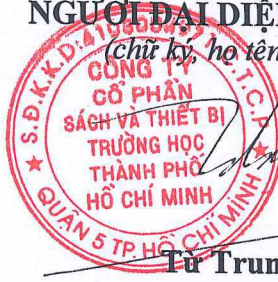 NGƯỜI ĐẠI DIỆ
(chữ ký, họ tên
CÔNG TY
CỔ PHẦN
SÁCH VÀ THIẾT BỊ
TRƯỜNG HỌC
THÀNH PHỐ
HỒ CHÍ MINH
QUẬN 5 TP. HỒ CHÍ MINH
Từ Trun